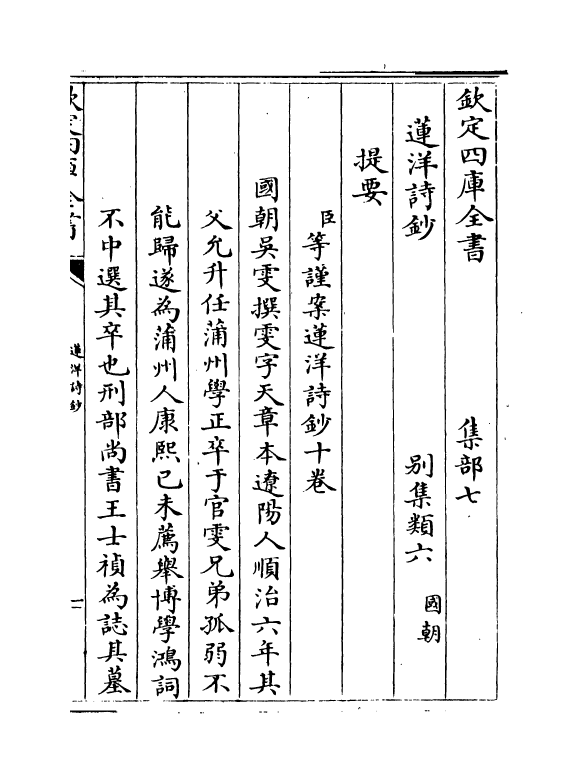 欽定四庫全書 集部七
蓮洋詩鈔 别集類六 國朝
提要
臣等謹案蓮洋詩鈔十卷
國朝吳雯撰雯字天章本遼陽人順治六年其
父允升任蒲州學正卒于官雯兄弟孤弱不
能歸遂為蒲州人康熙己未薦舉博學鴻詞
不中選其卒也刑部尚書王士禎為誌其墓
蓮洋詩鈔